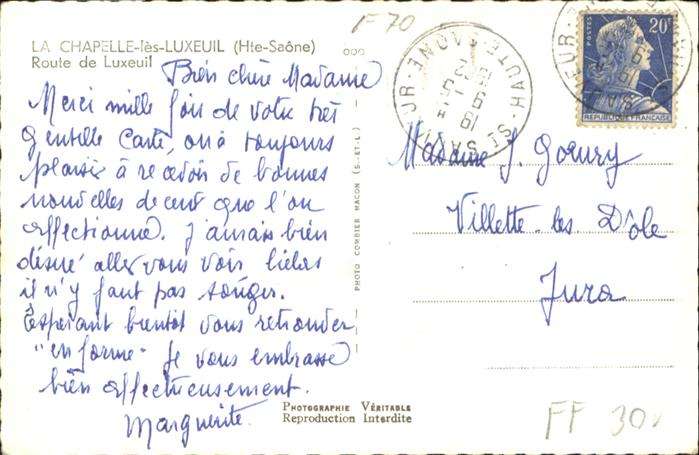 F 70
LA CHAPELLE-lès-LUXEUIL (Hte-Saône)
Route de Luxeuil
Bien chère Madame
Merci mille fois de votre très
gentille Carte, on a toujours
plaisir à recevoir de bonnes
nouvelles de ceux que l'on
affectionne. J'aurais bien
désiré aller vous voir hélas
il n'y faut pas songer.
Espérant bientôt vous retrouver
"en forme" Je vous embrasse
bien affectueusement.
Marguerite.
PHOTO COMBIER MACON (S.-ET-L.)
PHOTOGRAPHIE VÉRITABLE
Reproduction Interdite
ST SAUVEUR - HAUTE-SAÔNE
POSTES
20F
REPUBLIQUE FRANÇAISE
Madame J. Goeury
Villette-les Dôle
Jura
FF 30